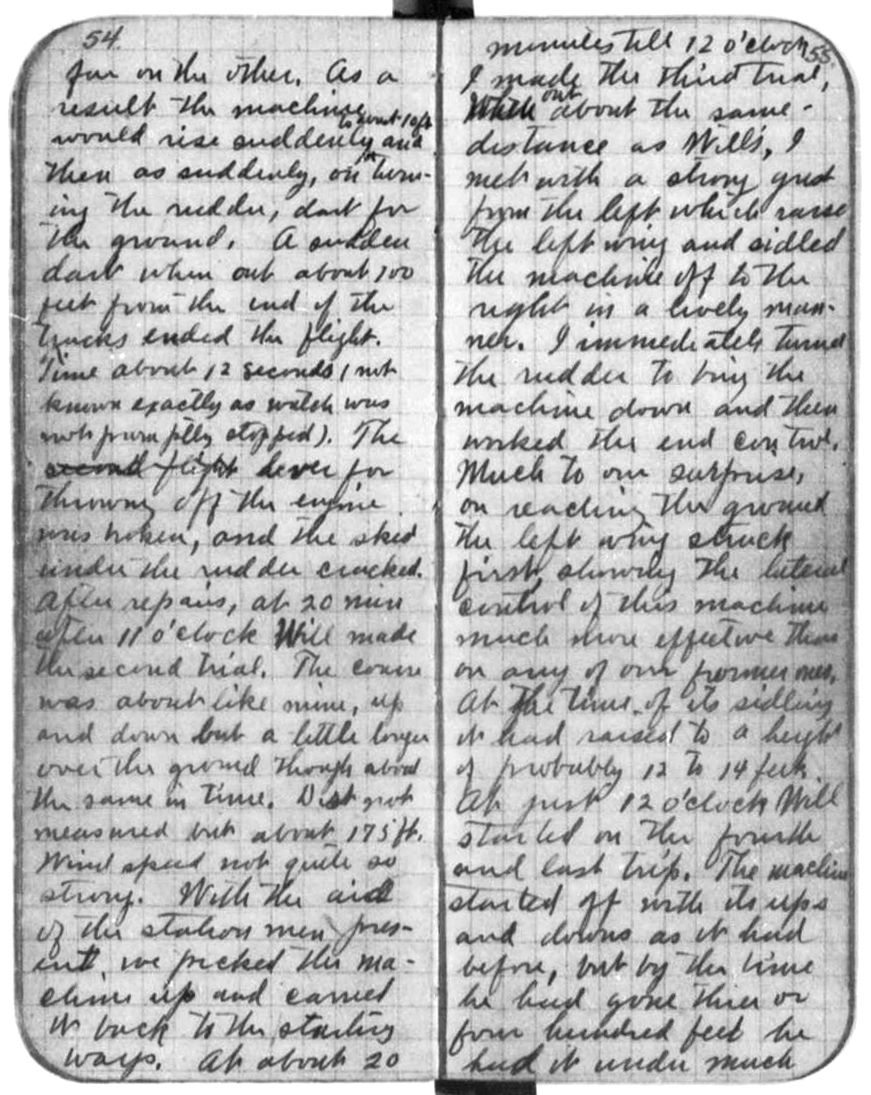 54
far on the other. As a
result the machine
would rise suddenly to about 10 ft. and
then as suddenly, on turn-
ing the rudder, dart for
the ground. A sudden
dart when out about 100
feet from the end of the
tracks ended the flight.
Time about 12 seconds (not
known exactly as watch was
not promptly stopped). The
second flight lever for
throwing off the engine
was broken, and the skid
under the rudder cracked.
After repairs, at 20 min
after 11 o'clock Will made
the second trial. The course
was about like mine, up
and down but a little longer
over the ground though about
the same in time. Dist not
measured but about 175 ft.
Wind speed not quite so
strong. With the aid
of the station men pres-
ent, we picked the ma-
chine up and carried
it back to the starting
ways. At about 20
55
minutes till 12 o'clock
I made the third trial,
When out about the same
distance as Will's, I
met with a strong gust
from the left which raised
the left wing and sidled
the machine off to the
right in a lively man-
ner. I immediately turned
the rudder to bring the
machine down and then
worked the end control.
Much to our surprise,
on reaching the ground
the left wing struck
first, showing the lateral
control of this machine
much more effective than
on any of our former ones.
At the time of its sidling
it had raised to a height
of probably 12 to 14 feet.
At just 12 o'clock Will
started on the fourth
and last trip. The machine
started off with its ups
and downs as it had
before, but by the time
he had gone three or
four hundred feet he
had it under much